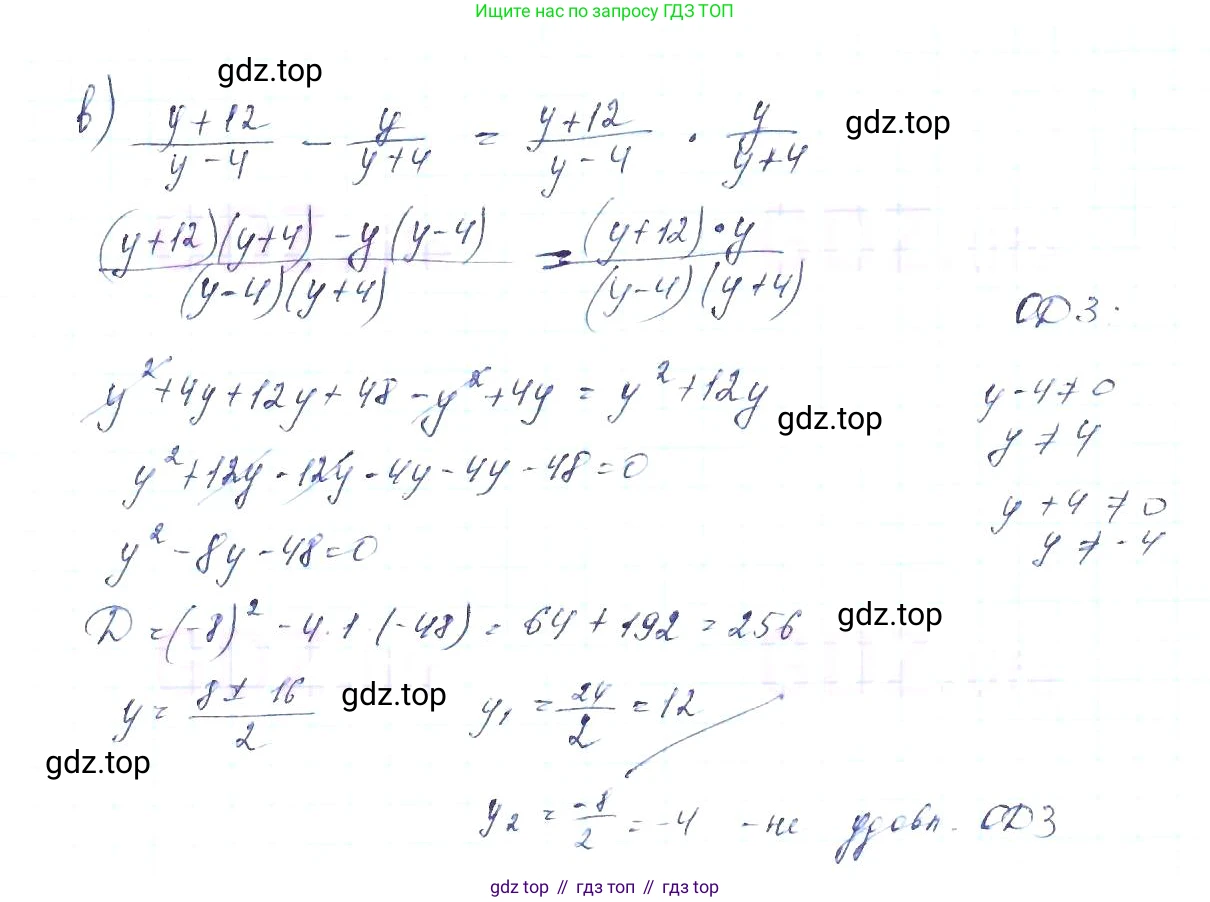 Ищите нас по запросу ГДЗ ТОП
gdz.top
в) (y+12)/(y-4) - y/(y+4) = (y+12)/(y-4) · y/(y+4) gdz.top
((y+12)(y+4) - y(y-4))/((y-4)(y+4)) = ((y+12)·y)/((y-4)(y+4))
ОДЗ:
y²+4y+12y+48-y²+4y = y²+12y gdz.top
y-4≠0
y≠4
y²+12y-12y-4y-4y-48=0
y+4≠0
y≠-4
y²-8y-48=0
D=(-8)²-4·1·(-48)=64+192=256 gdz.top
y=(8±16)/2 gdz.top y₁=24/2=12
gdz.top
y₂=-8/2=-4 -не удовл. ОДЗ
gdz top // гдз топ // gdz top